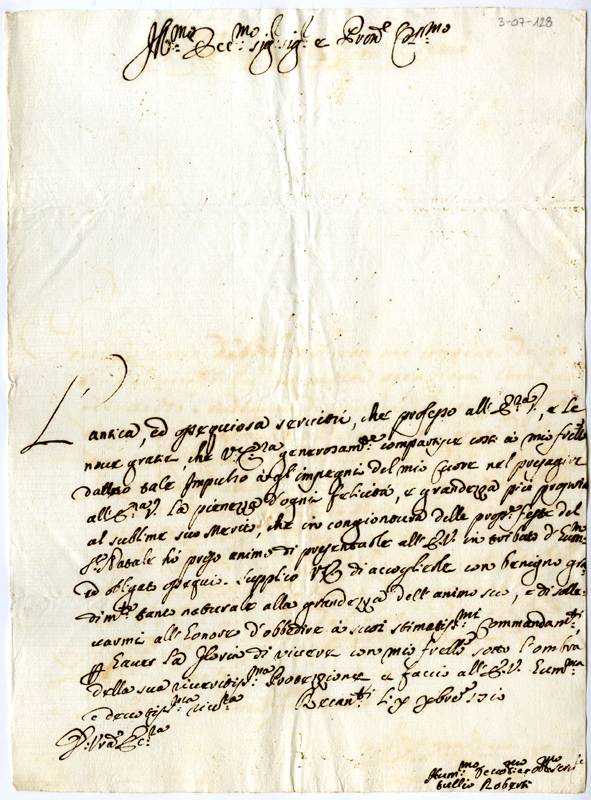 3-07-128
Ill:mo Ecc:mo Sig: Sig: e Pron: Col:mo
L'antica, ed ossequiosa servitù, che professo all' E:za V:, e le
nove grazie, che V: E:za generosam:te compartisce costì à mio fretello
danno tale impulso agl'impegni del mio Cuore nel presagire
all' E:za V: la pienezza d'ogni felicità, e grandezza più propria
al sublime suo Merito, che in congiontura delle pross:e feste del
S: Natale hò preso animo di presentarle all' E: V: in tributo d'hum:mo
ed obligato ossequio. Supplico V: E: di accoglierle con benigno gra-
dim:to tanto naturale alla grandezza dell' animo suo, e di solle-
varmi all' honore d'obbedire à suoi stimatiss:mi Commandam:ti
haver la gloria di vivere con mio fretello sotto l'ombra
della sua riveritiss:ma Protezzione e faccio all' E: V: hum:ma
e devotiss:ma riv:za Recan:ti li 9bre 1710
D: Vra Ecc:za
Hum:mo Devot:mo Obl:mo Ser:
Tullio Roberti